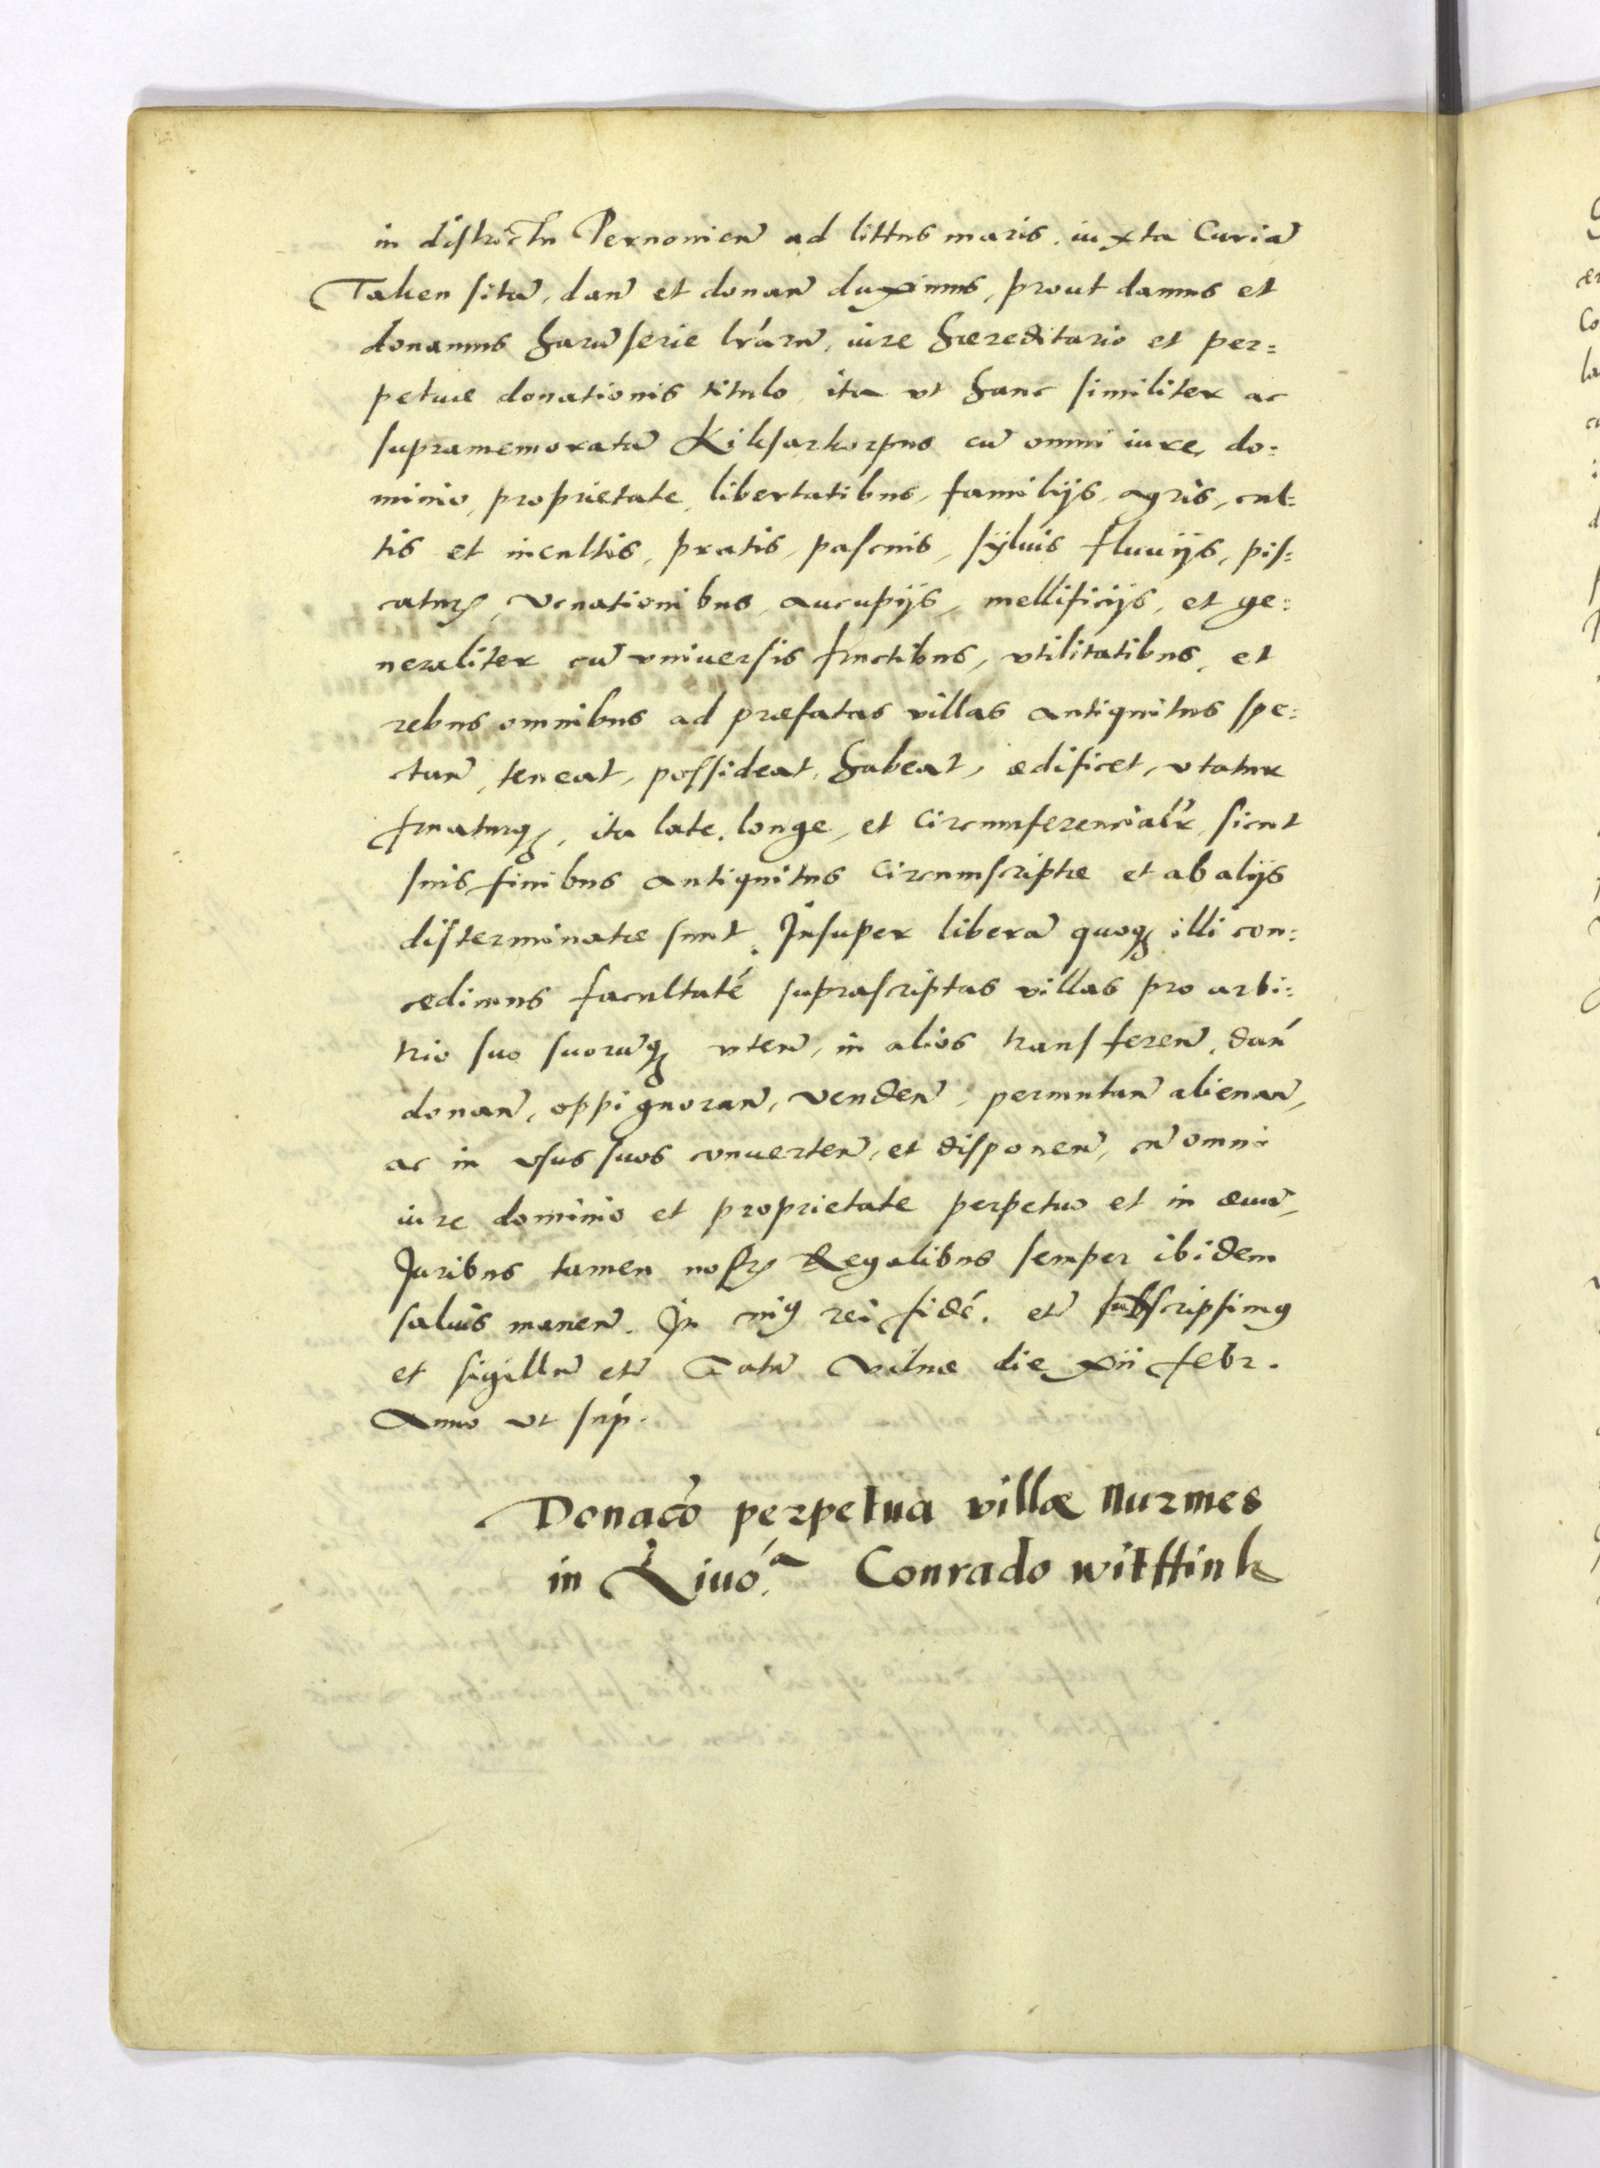 in districtu Pernonien̄ ad littus maris iuxta Curiā
Taken sitā, dan̄ et donan̄ duximus, prout damus et
donamus harū serie lrārū, iure hæreditario et per=
petuæ donationis titulo ita vt hanc similiter ac
supramemoratā Kiksarkorpus cū omni iure, do=
minio, proprietate, libertatibus, familijs, agris, cul=
tis et incultis, pratis, pascuis, syluis fluuijs, pis=
caturꝭ, venationibus, aucupijs, mellificijs, et ge=
neraliter cū vniuersis fructibus, vtilitatibus, et
rebus omnibus ad præfatas villas antiquitus spe=
ctan̄, teneat, possideat, habeat, ædificet, vtatur
fruaturqꝫ, ita late, longe, et circumferencialr̄, sicut
suis finibus antiquitus circumscriptæ et ab alijs
disterminatæ sunt. Insuper liberā quoqꝫ illi con=
cedimus facultatē suprascriptas villas pro arbi=
trio suo suorūqꝫ vten̄, in alios transferen̄, dan̄
donan̄, oppignoran̄, venden̄, permutan̄ alienan̄,
ac in vsus suos conuerten̄, et disponen̄, cū omni
iure dominio et proprietate perpetuo et in æuū,
Juribus tamen nostrꝭ Regalibus semper ibidem
saluis manen̄. In cuiꝰ rei fidē. etc̄ subscripsimꝰ
et sigillū etc̄ Datū Vilnæ die xii febr.
Anno vt sup̄.
Donac̄o perpetua villæ Nurmes
in Liuōᵃ. Conrado wittfink